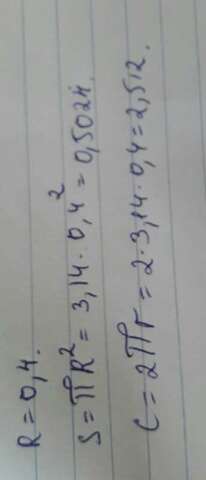 R=0,4.
S=πR²=3,14·0,4²=0,5024.
C=2πr=2·3,14·0,4=2,512.